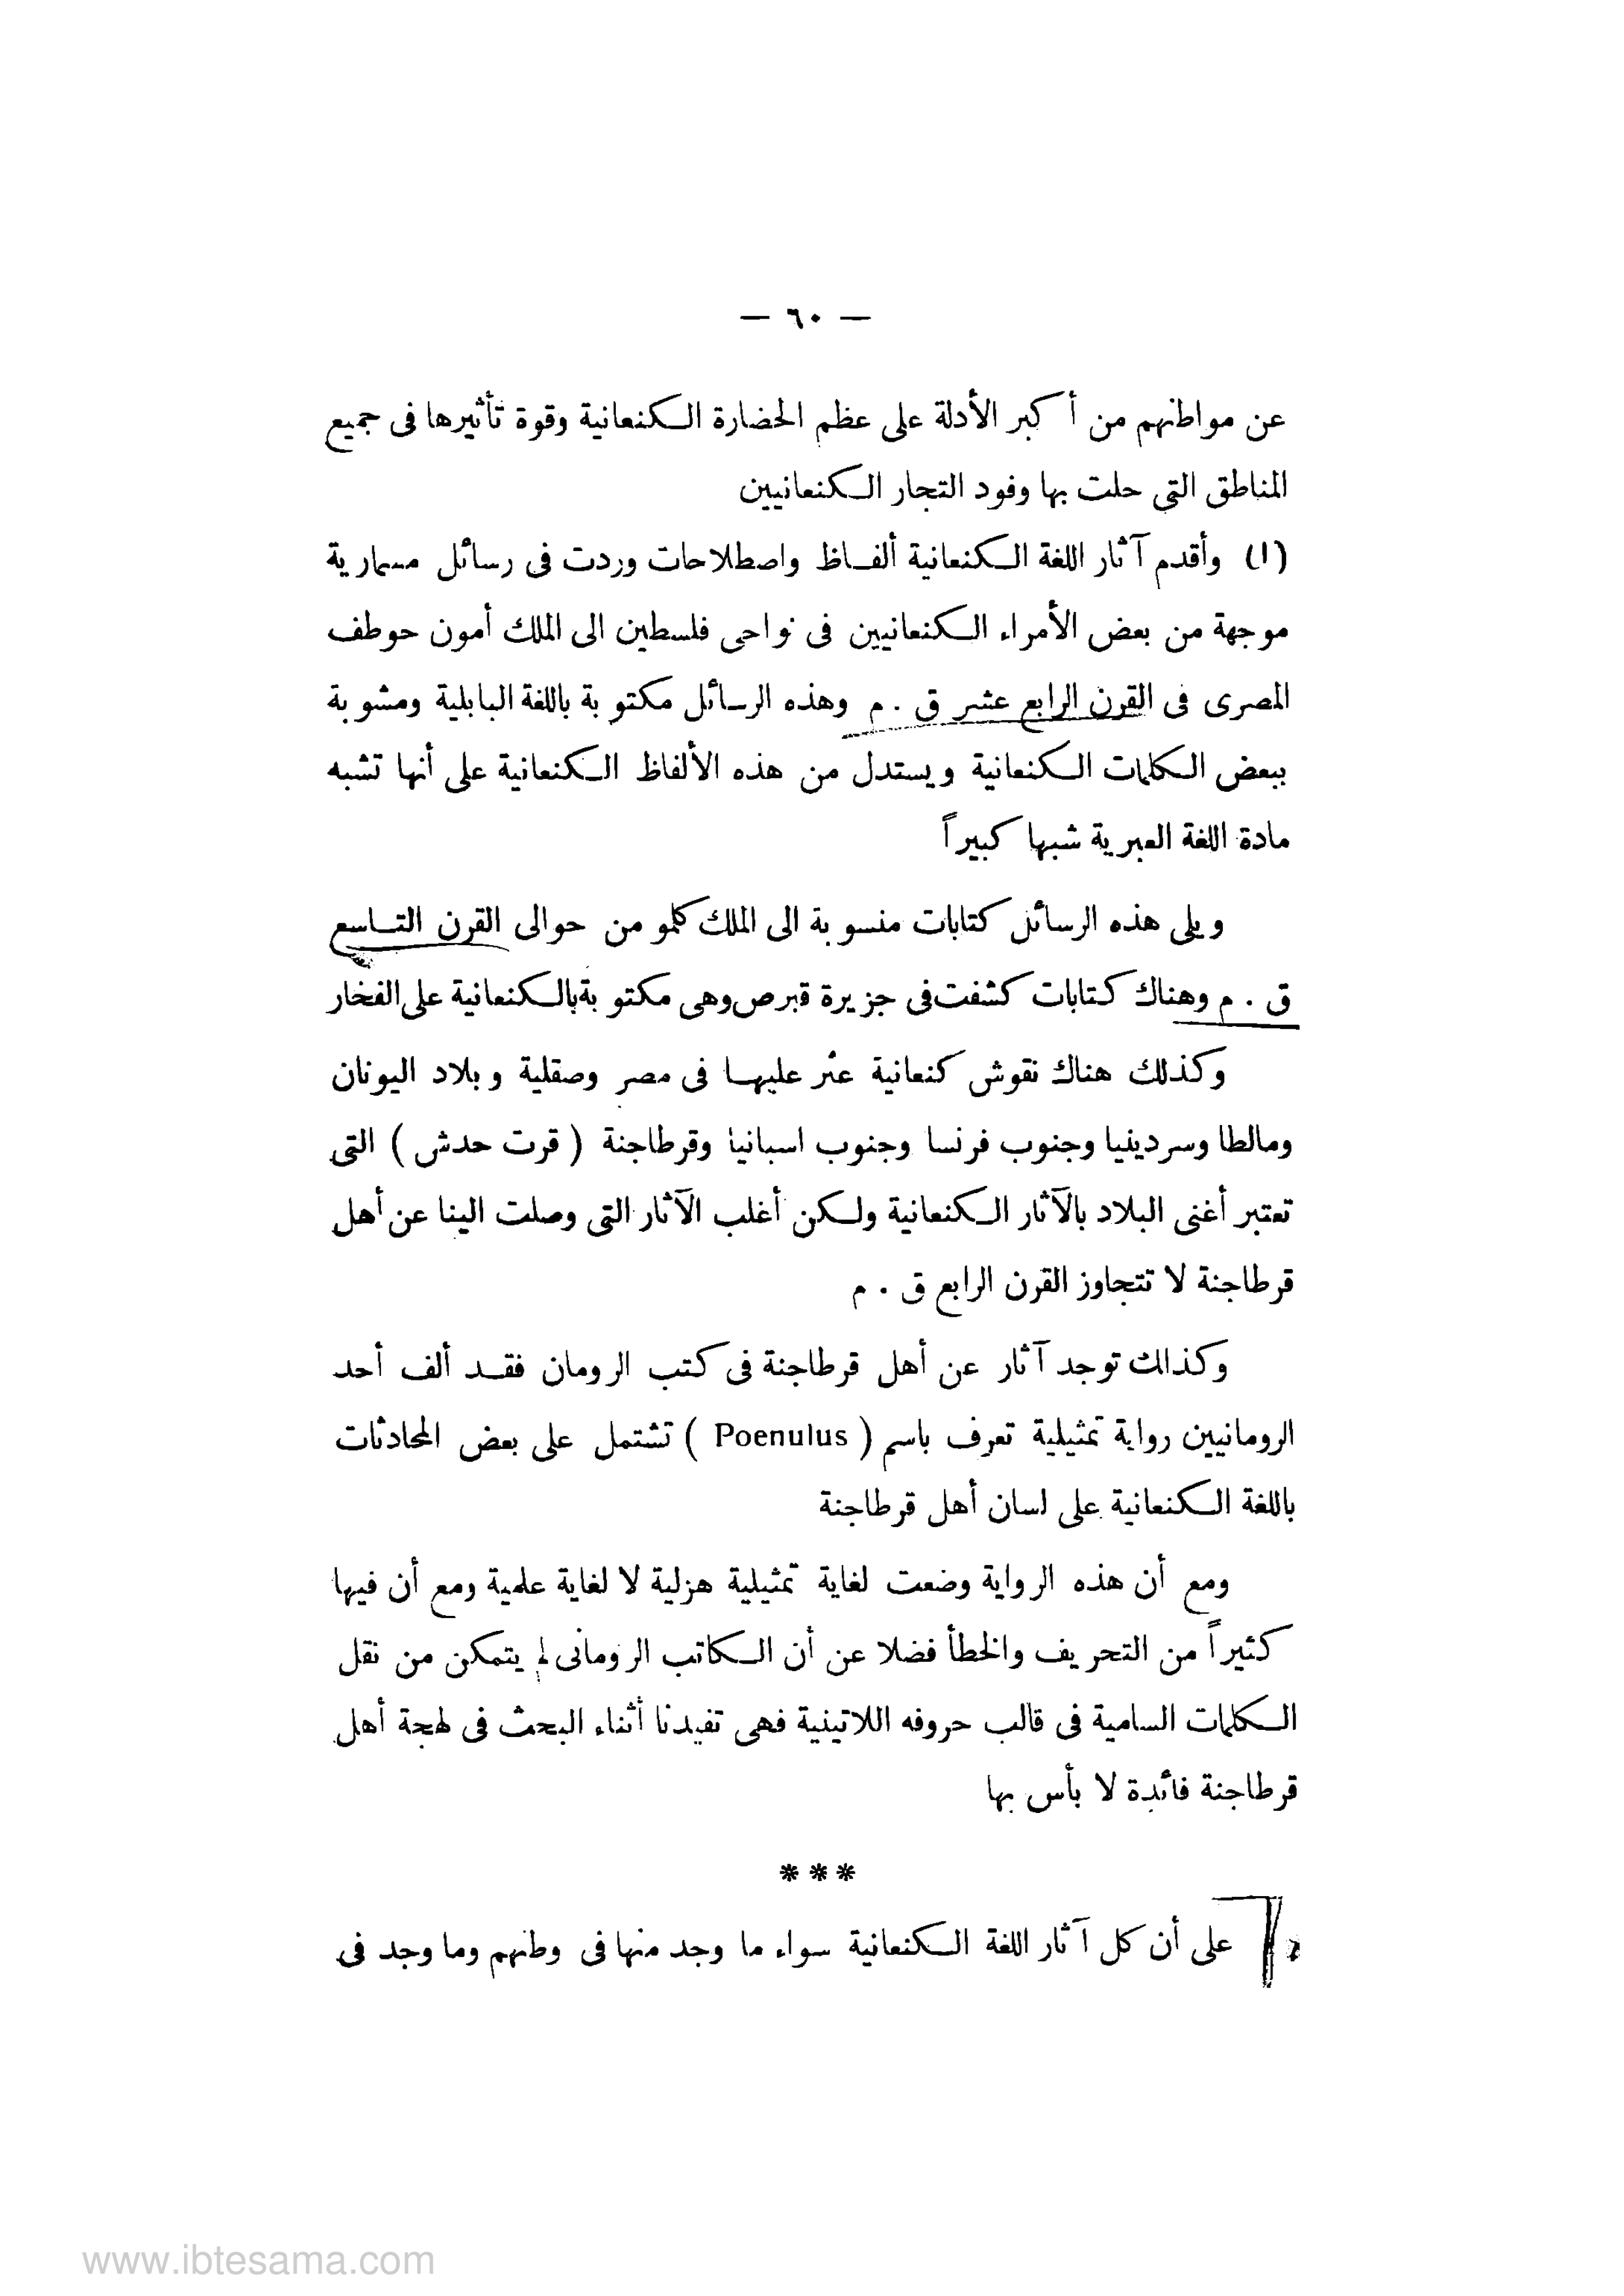 — ٦٠ —
عن مواطنهم من أكبر الأدلة على عظم الحضارة الكنعانية وقوة تأثيرها فى جميع
المناطق التى حلت بها وفود التجار الكنعانيين
(١) وأقدم آثار اللغة الكنعانية ألفاظ واصطلاحات وردت فى رسائل مسمارية
موجهة من بعض الأمراء الكنعانيين فى نواحى فلسطين الى الملك أمون حوطف
المصرى فى القرن الرابع عشر ق . م وهذه الرسائل مكتوبة باللغة البابلية ومشوبة
ببعض الكلمات الكنعانية ويستدل من هذه الألفاظ الكنعانية على أنها تشبه
مادة اللغة العبرية شبها كبيراً
ويلى هذه الرسائل كتابات منسوبة الى الملك كلمو من حوالى القرن التاسع
ق . م وهناك كتابات كشفت فى جزيرة قبرص وهى مكتوبة بالكنعانية على الفخار
وكذلك هناك نقوش كنعانية عثر عليها فى مصر وصقلية وبلاد اليونان
ومالطا وسردينيا وجنوب فرنسا وجنوب اسبانيا وقرطاجنة ( قرت حدش ) التى
تعتبر أغنى البلاد بالآثار الكنعانية ولكن أغلب الآثار التى وصلت الينا عن أهل
قرطاجنة لا تتجاوز القرن الرابع ق . م
وكذلك توجد آثار عن أهل قرطاجنة فى كتب الرومان فقد ألف أحد
الرومانيين رواية تمثيلية تعرف باسم ( Poenulus ) تشتمل على بعض المحادثات
باللغة الكنعانية على لسان أهل قرطاجنة
ومع أن هذه الرواية وضعت لغاية تمثيلية هزلية لا لغاية علمية ومع أن فيها
كثيراً من التحريف والخطأ فضلا عن أن الكاتب الرومانى لم يتمكن من نقل
الكلمات السامية فى قالب حروفه اللاتينية فهى تفيدنا أثناء البحث فى لهجة أهل
قرطاجنة فائدة لا بأس بها
***
على أن كل آثار اللغة الكنعانية سواء ما وجد منها فى وطنهم وما وجد فى
www.ibtesama.com